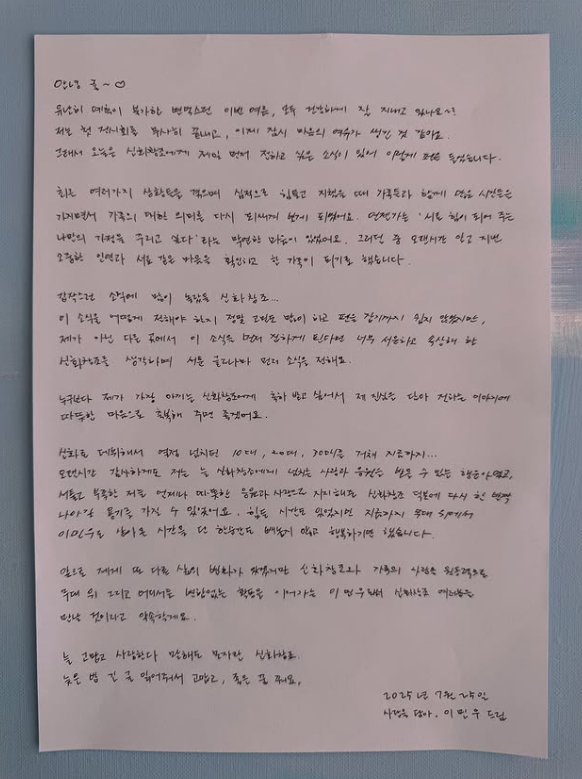 안녕 글~♡
유난히 더움이 복가한 변덕스런 이번 여름, 모두 건강하게 잘 지내고 있나요~?
저는 첫 전시회를 무사히 끝내고, 이제 잠시 마음의 여유가 생긴 것 같아요.
그래서 오늘은 신화창조에게 제일 먼저 전하고 싶은 소식이 있어 이렇게 펜을 들었습니다.
최근 여러가지 상황들을 겪으며 심적으로 힘들고 지쳤을 때 가족들과 함께 많은 시간들을
가지면서 가족에 대한 의미를 다시 되새기게 되었어요. 언젠가는 '서로 힘이 되어 주는
나만의 가정을 꾸리고 싶다'라는 막연한 마음이 있었어요. 그러던 중 오랜시간 알고 지낸
소중한 인연과 서로 같은 마음을 확인하고 한 가족이 되기로 했습니다.
갑작스런 소식에 많이 놀랐을 신화창조...
이 소식을 어떻게 전해야 하지 정말 고민도 많이 하고 펜을 잡기까지 쉽지 않았지만,
제가 아닌 다른 곳에서 이 소식을 먼저 전하게 된다면 너무 서운하고 속상해 할
신화창조를 생각하며 서툰 글로나마 먼저 소식을 전해요.
누구보다 제가 가장 아끼는 신화창조에게 축하 받고 싶어서 제 진심을 담아 전하는 이야기에
따뜻한 마음으로 축복해 주면 좋겠어요.
신화로 데뷔해서 열정 넘치던 10대, 20대, 30대를 거쳐 지금까지...
오랜시간 감사하게도 저는 늘 신화창조에게 넘치는 사랑과 응원을 받을 수 있는 행운아였고,
서툴고 부족한 저를 언제나 따뜻한 응원과 사랑으로 지지해준 신화창조 덕분에 다시 한 번
나아갈 용기를 가질 수 있었어요. 힘든 시간도 있었지만 지금까지 무대 위에서
이민우로 살아온 시간을 단 한순간도 빼놓지 않고 행복하기만 했습니다.
앞으로 제게 또 다른 삶의 변화가 있겠지만 신화창조와 가족의 사랑을 원동력으로
무대 위 그리고 어디서든 변함없는 활동을 이어가는 이민우로 신화창조 여러분을
만날 것이라고 약속할게요.
늘 고맙고 사랑한다 말해도 모자란 신화창조..
늦은 밤 긴 글 읽어줘서 고맙고, 좋은 꿈 꿔요,
2025년 7월 25일
사랑을 담아, 이민우 드림